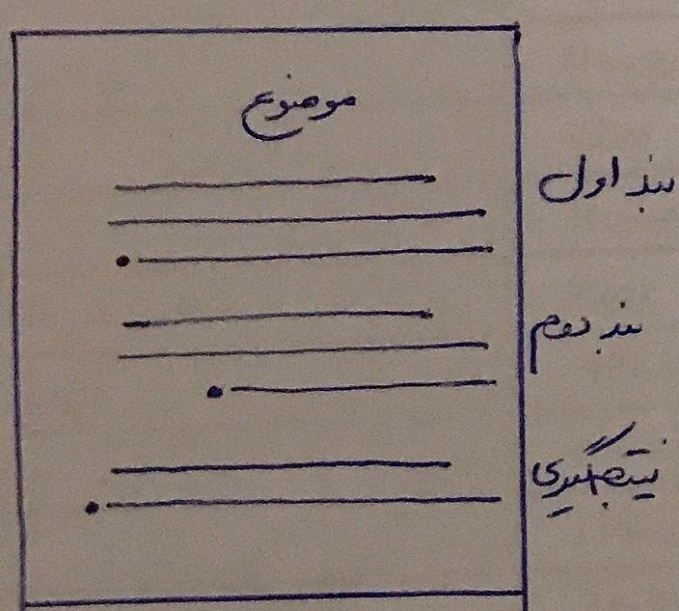 موضوع
بند اول
بند دوم
نتیجه‌گیری